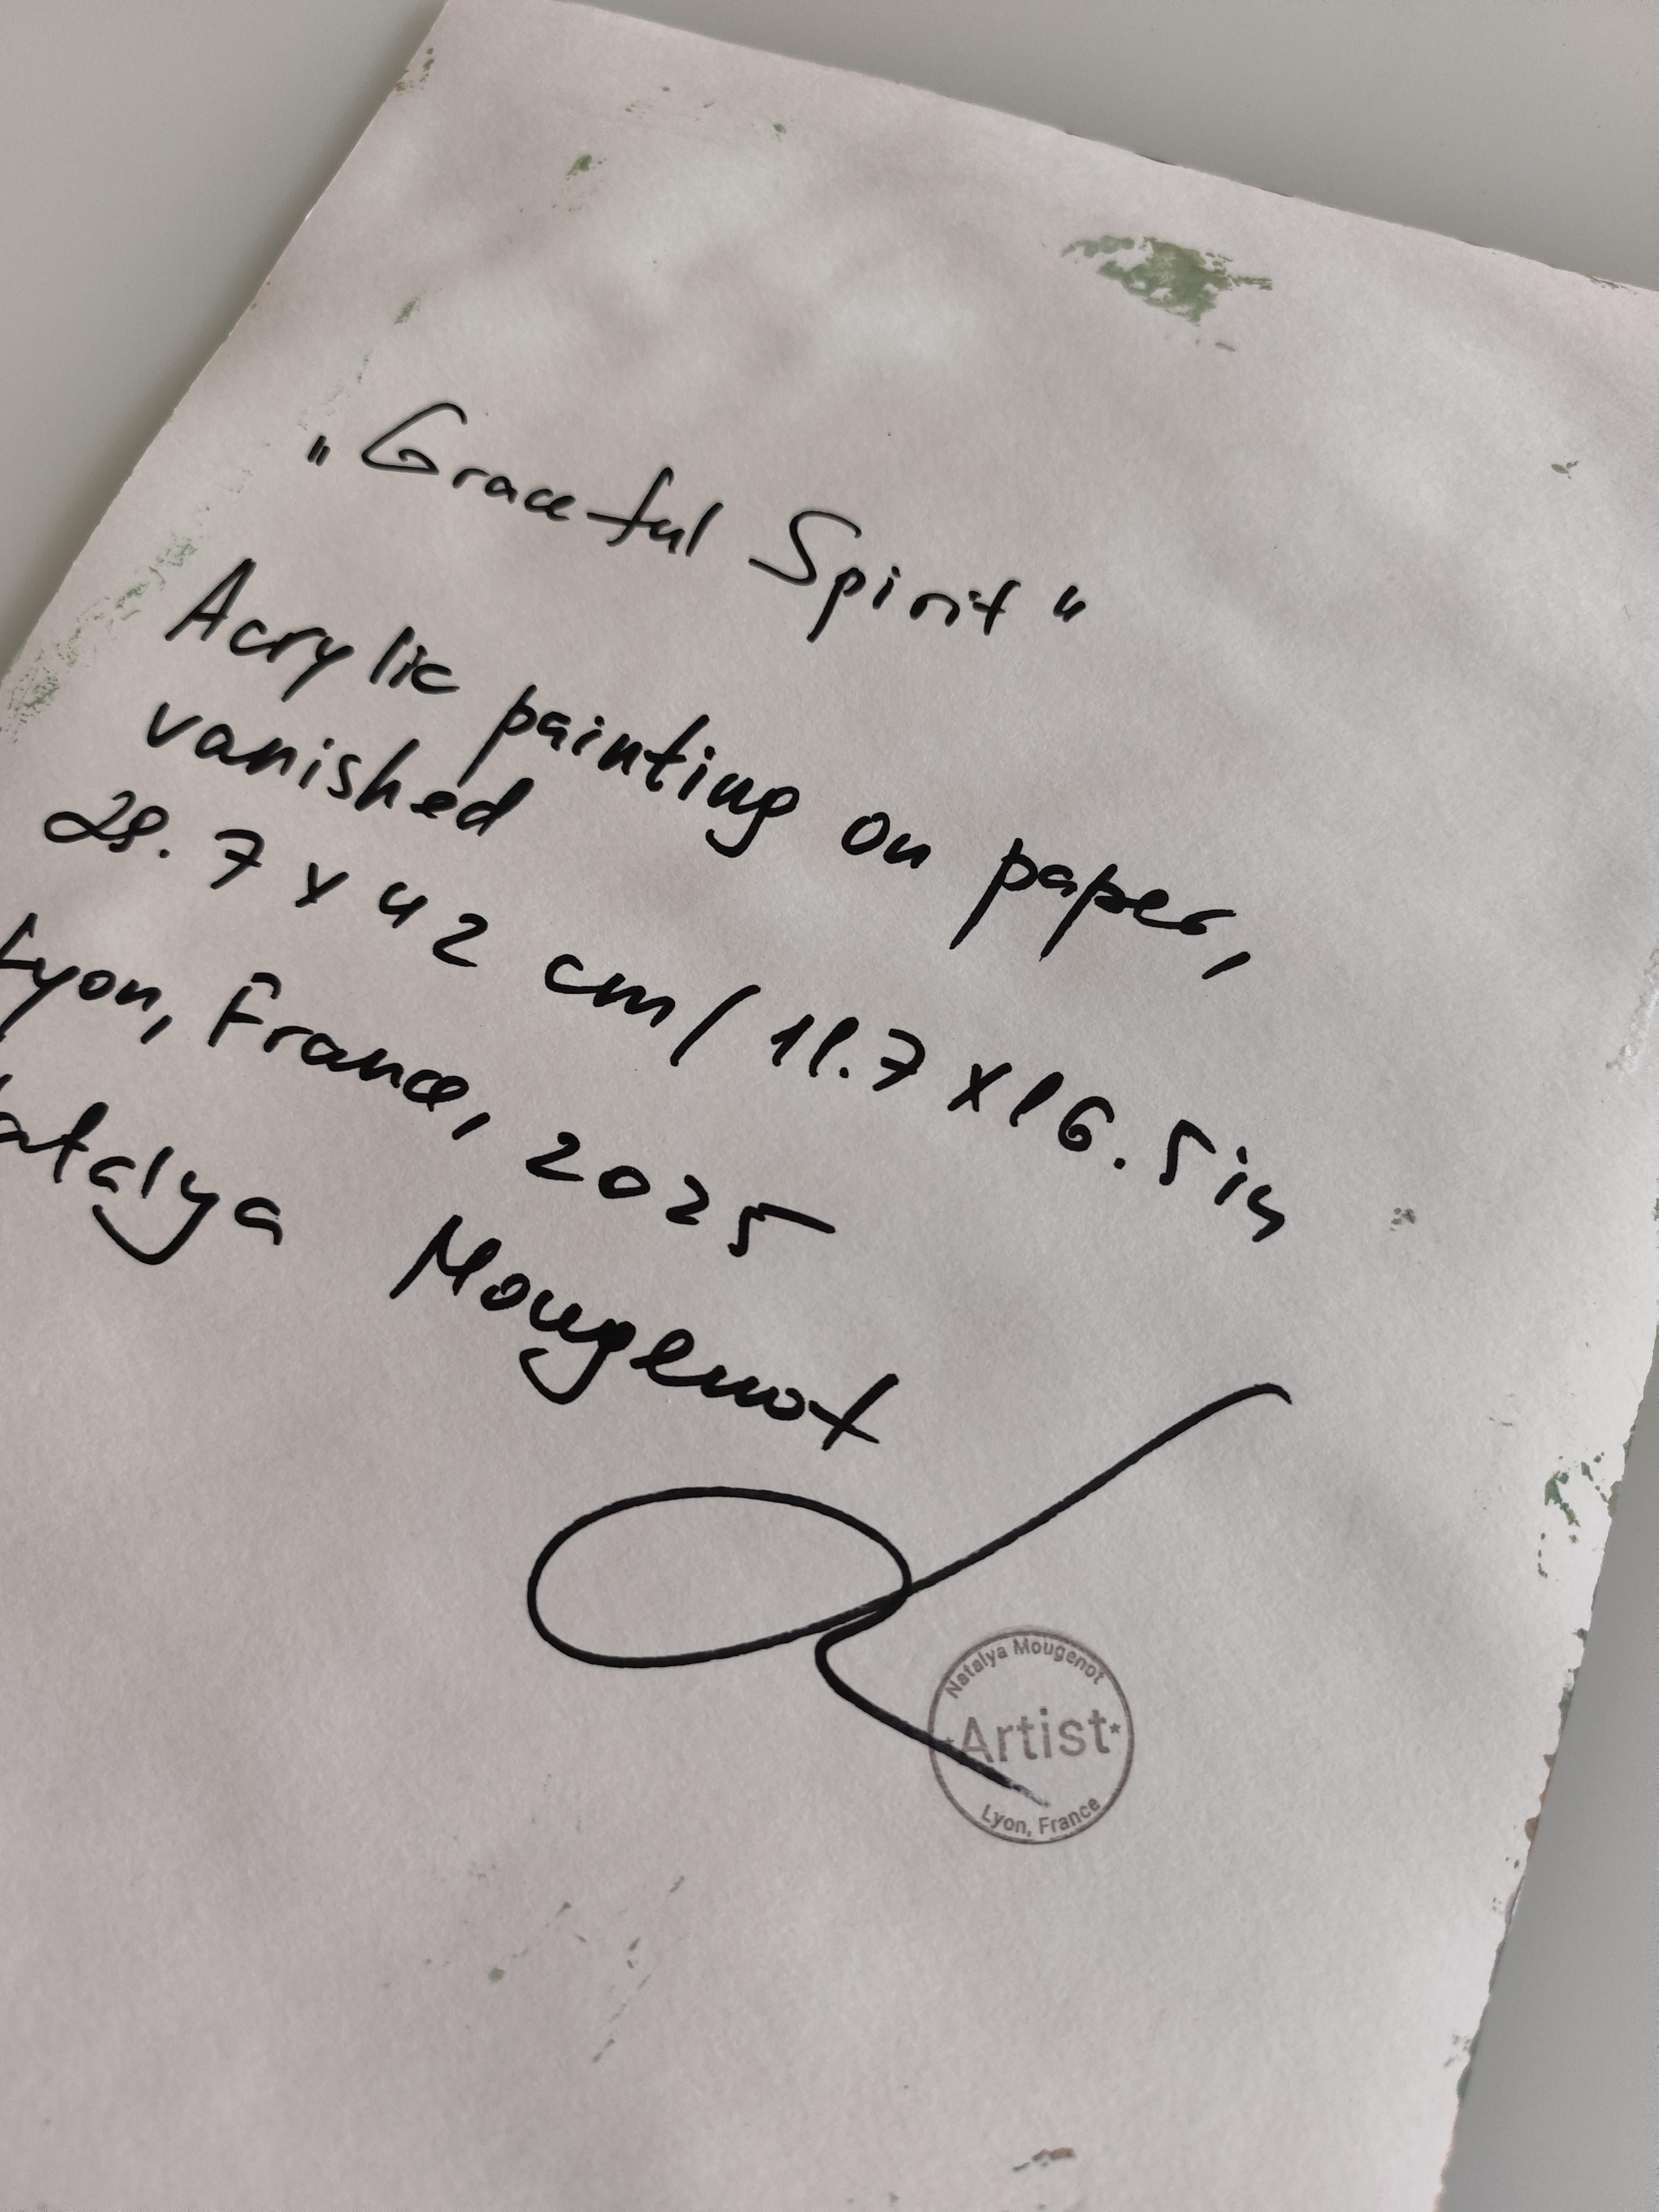 „Graceful Spirit“
Acrylic painting on paper,
vanished
28.7 x 42 cm / 11.7 x 16.5 in
Lyon, France, 2025
atalya Mougenot
Natalya Mougenot
Artist
Lyon, France